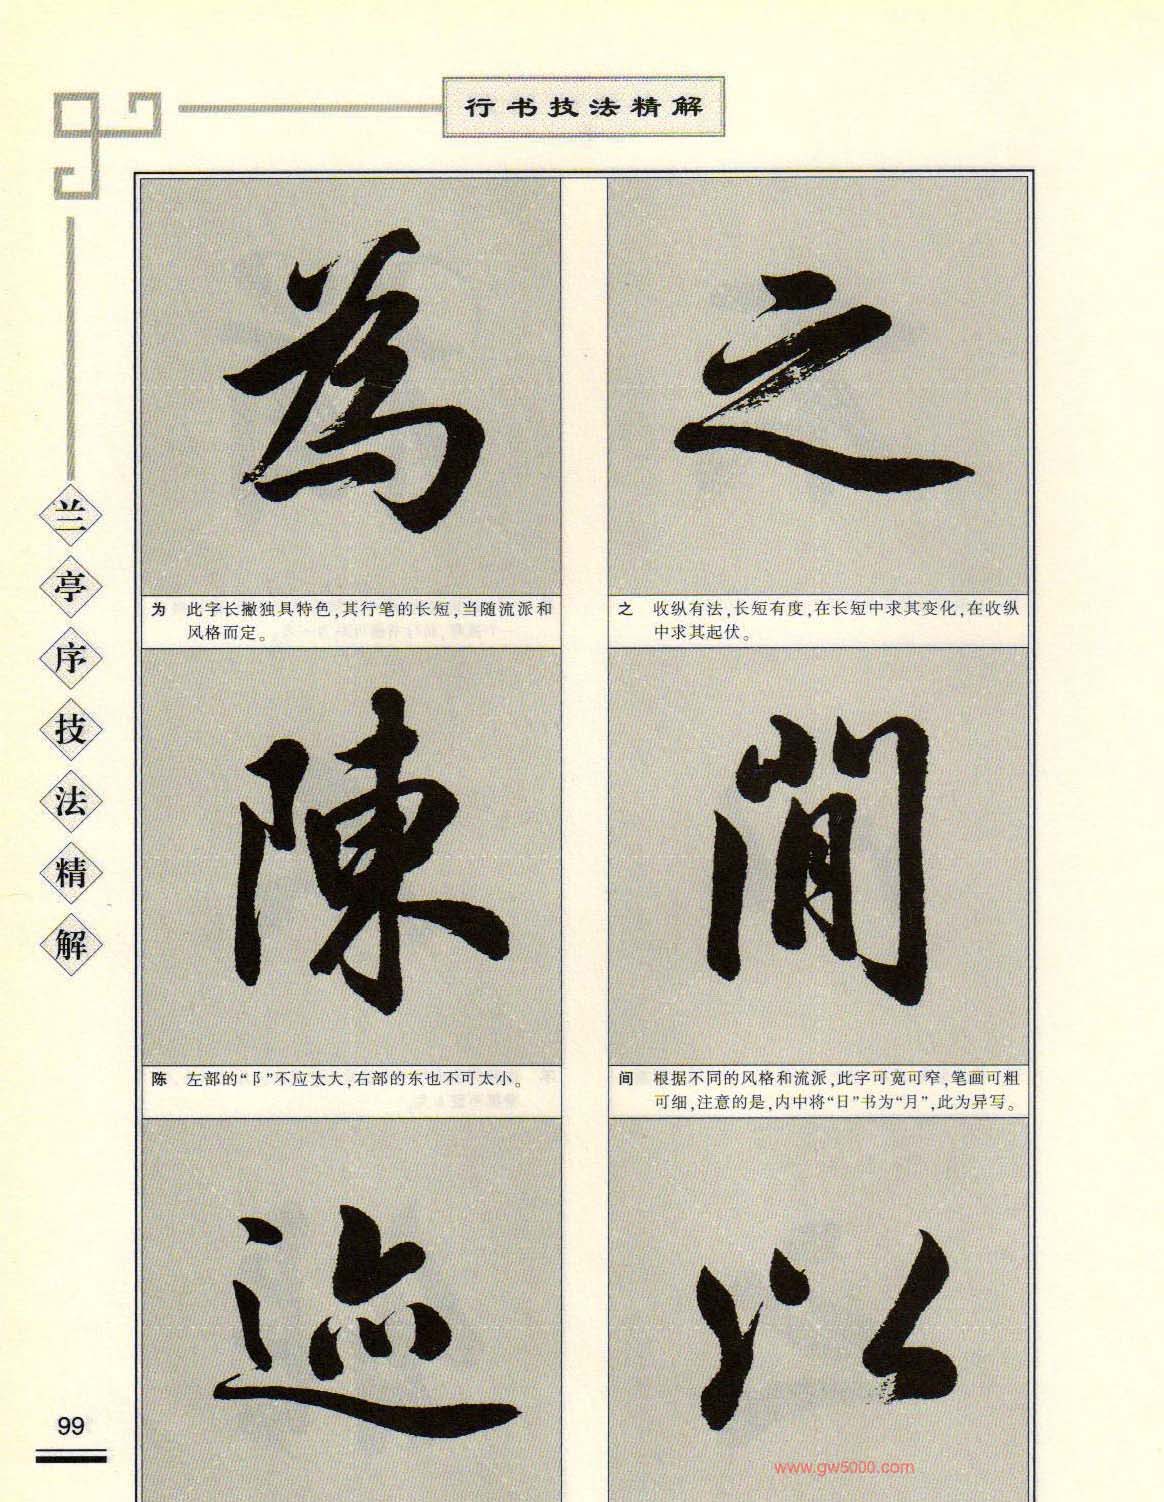 行书技法精解
兰亭序技法精解
為
之
为 此字长撇独具特色,其行笔的长短,当随流派和
风格而定。
之 收纵有法,长短有度,在长短中求其变化,在收纵
中求其起伏。
陳
間
陈 左部的“阝”不应太大,右部的东也不可太小。
间 根据不同的风格和流派,此字可宽可窄,笔画可粗
可细,注意的是,内中将“日”书为“月”,此为异写。
迹
以
99
www.gw5000.com